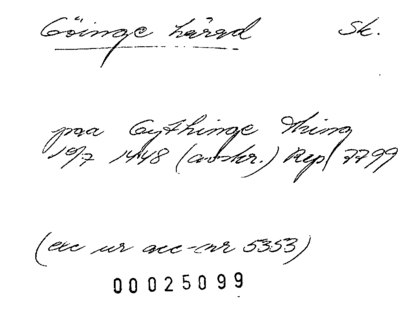 Göinge härad Sk.
paa Gythinge thing
19/7 1448 (avskr.) Rep( 7799
(exc ur acc-nr 5353)
00025099